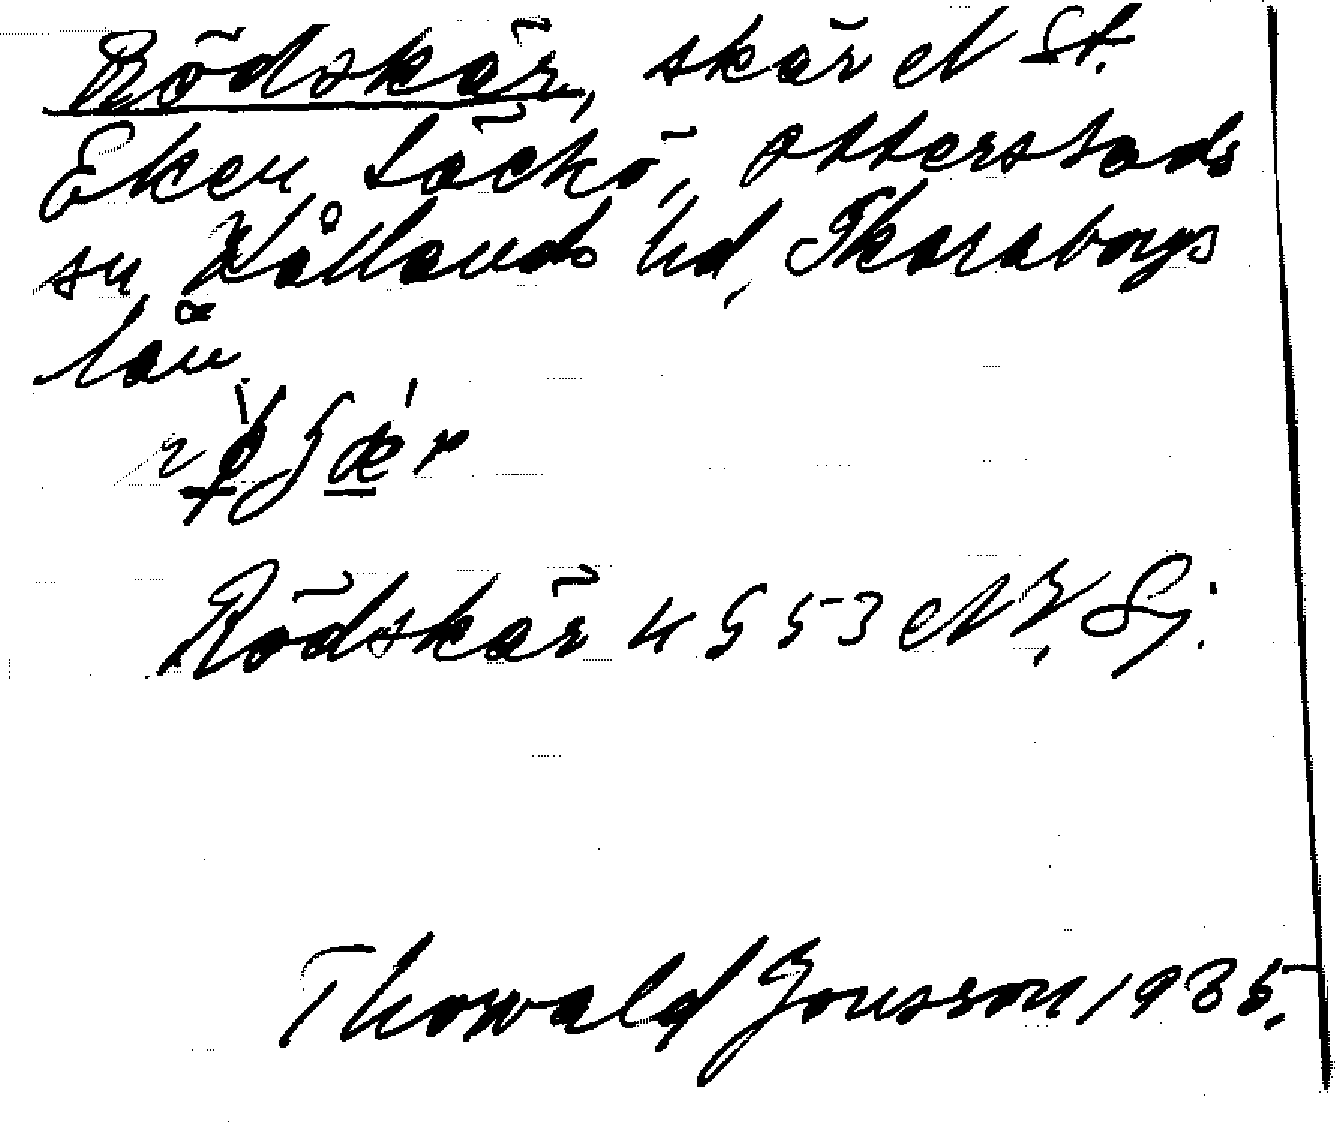 Rödskär, skär N St.
Eken, Läckö, Otterstads
sn Kållands hd, Skaraborgs
län
Rödskär 4553 NE, Sj.
Thorvald Jonsson 1935.